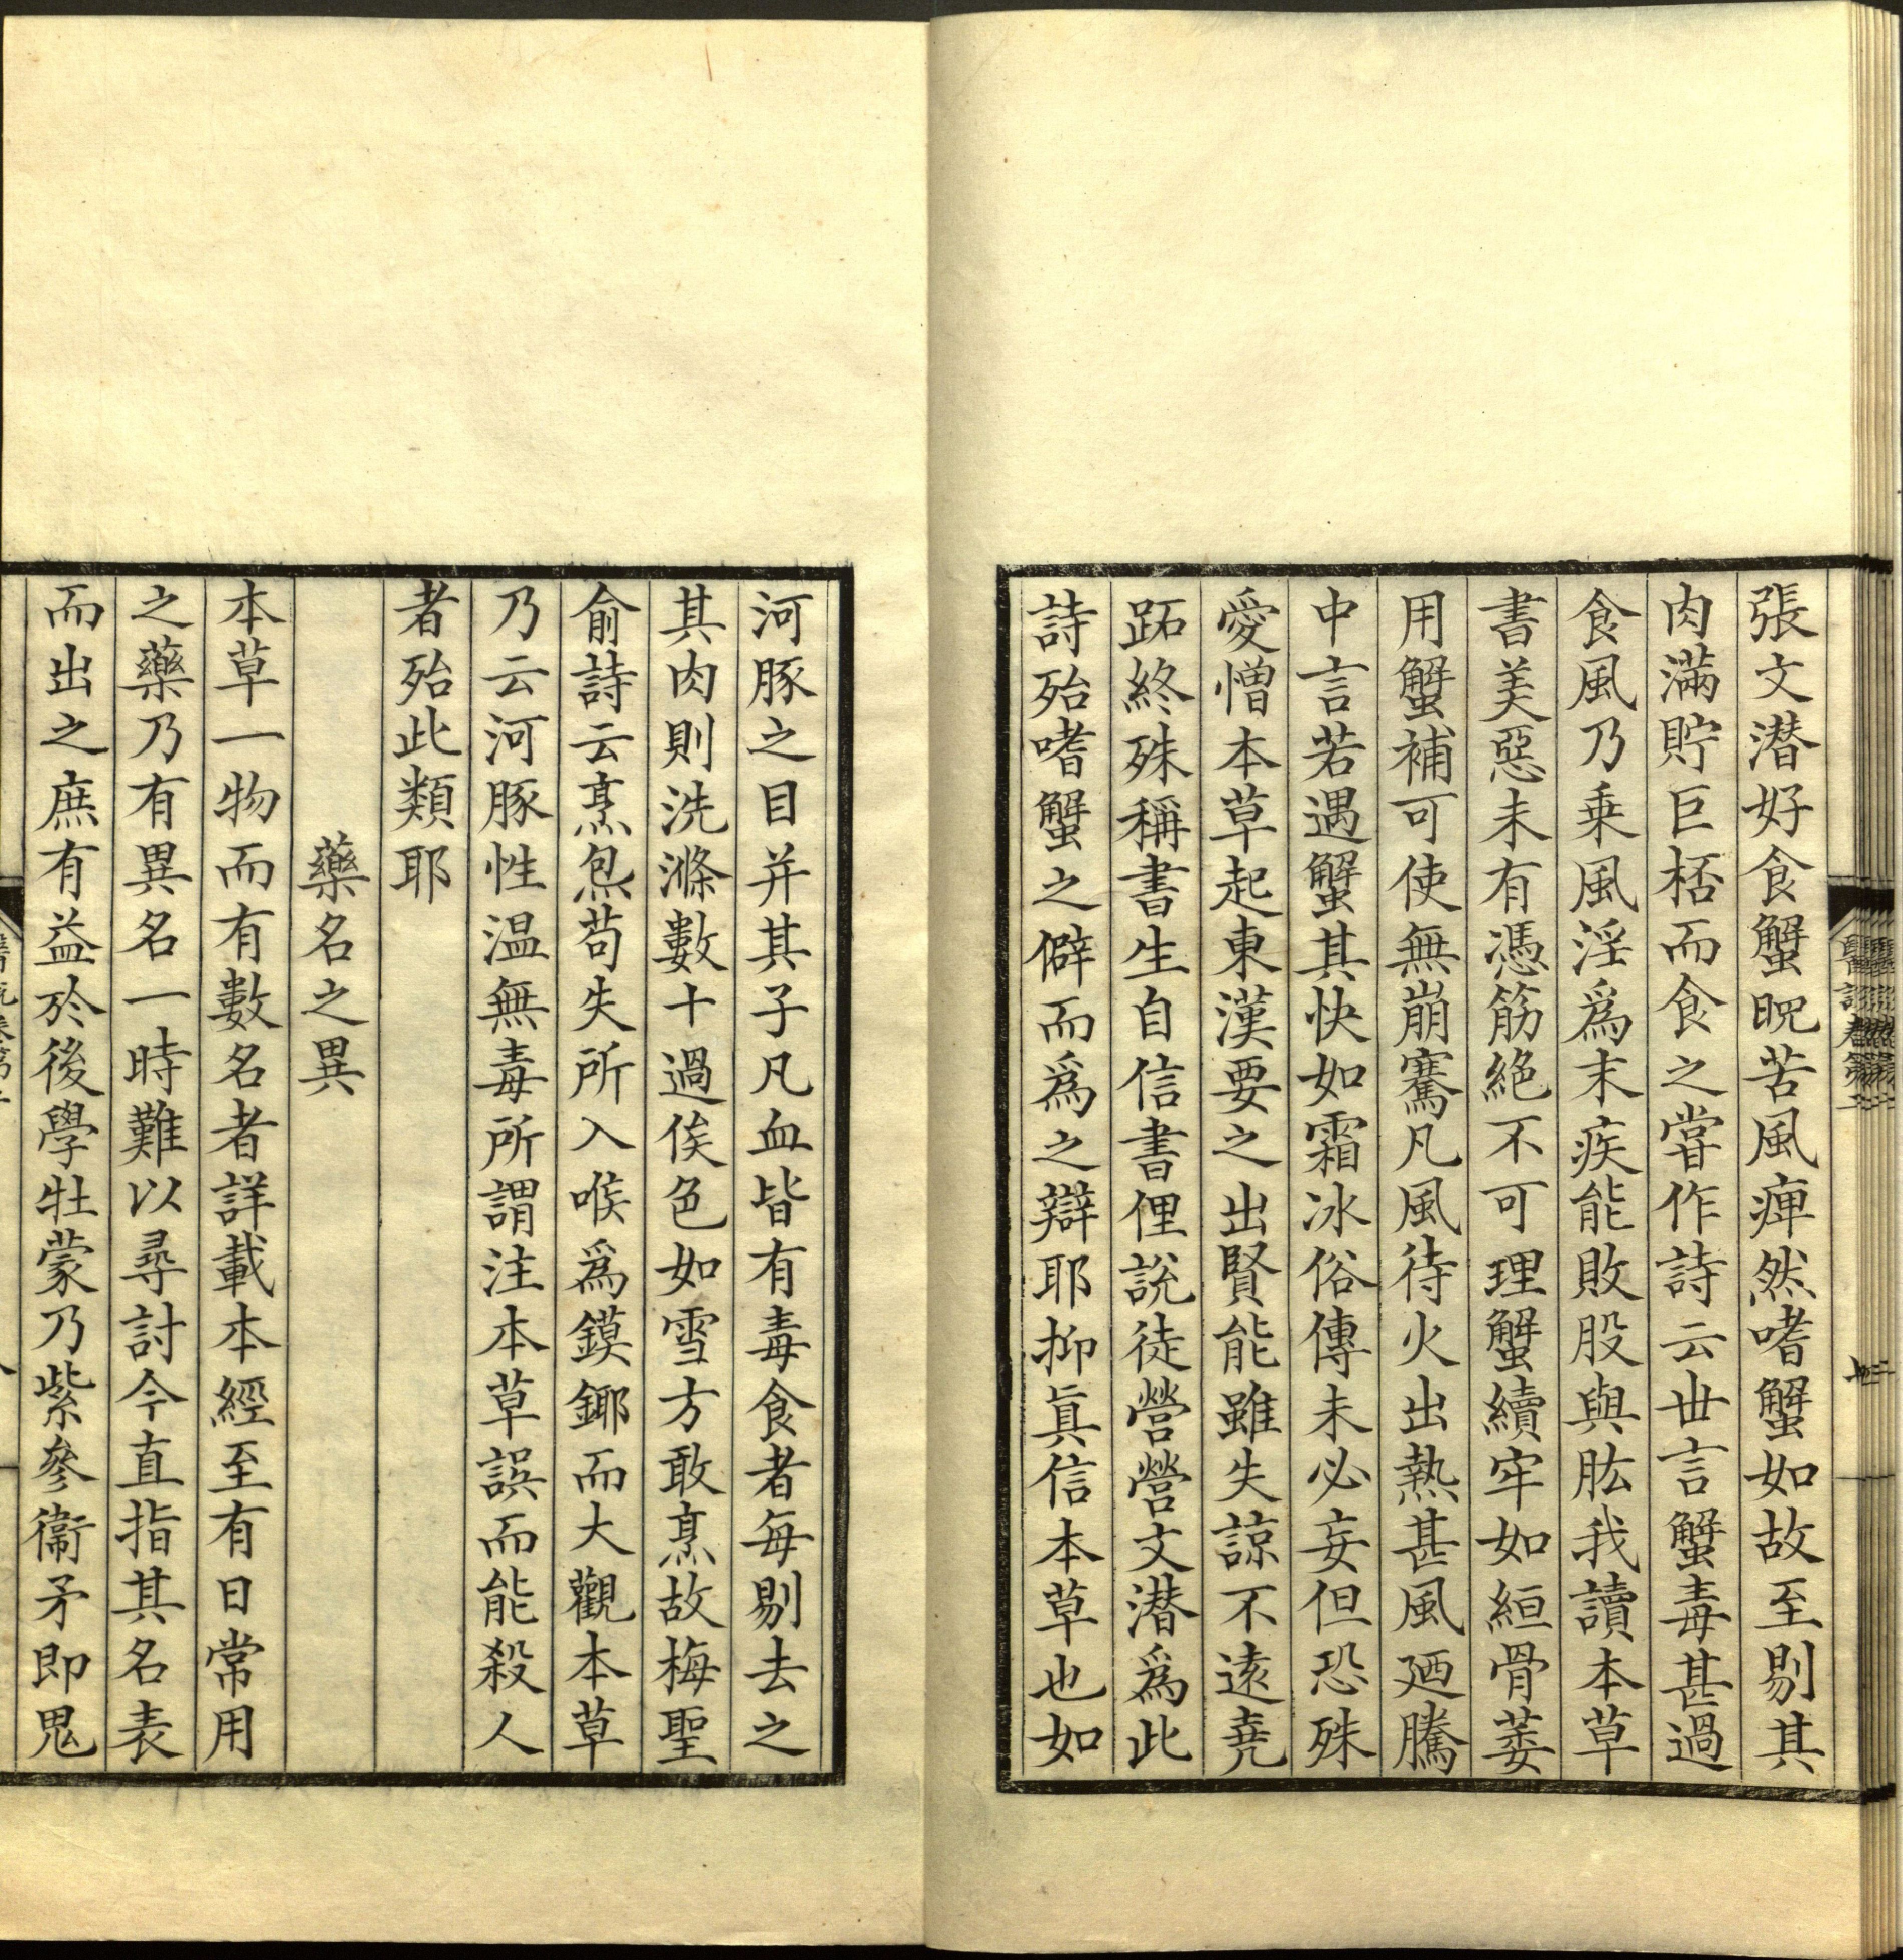 張文潜好食蟹晩苦風痺然嗜蟹如故至剔其
肉滿貯巨桮而食之嘗作詩云世言蟹毒甚過
食風乃乗風淫爲末疾能敗股與肱我讀本草
書美惡未有憑筋絶不可理蟹續牢如絙骨萎
用蟹補可使無崩騫凡風待火出熱甚風廼騰
中言若遇蟹其快如霜冰俗傳未必妄但恐殊
愛憎本草起東漢要之出賢能雖失諒不遠堯
跖終殊稱書生自信書俚說徒營營文潜爲此
詩殆嗜蟹之僻而爲之辯耶抑眞信本草也如
河豚之目并其子凡血皆有毒食者每剔去之
其肉則洗滌數十過俟色如雪方敢烹故梅聖
俞詩云烹炰苟失所入喉爲鏌鎁而大觀本草
乃云河豚性温無毒所謂注本草誤而能殺人
者殆此類耶
藥名之異
本草一物而有數名者詳載本經至有日常用
之藥乃有異名一時難以尋討今直指其名表
而出之庶有益於後學牡蒙乃紫參衞矛即鬼